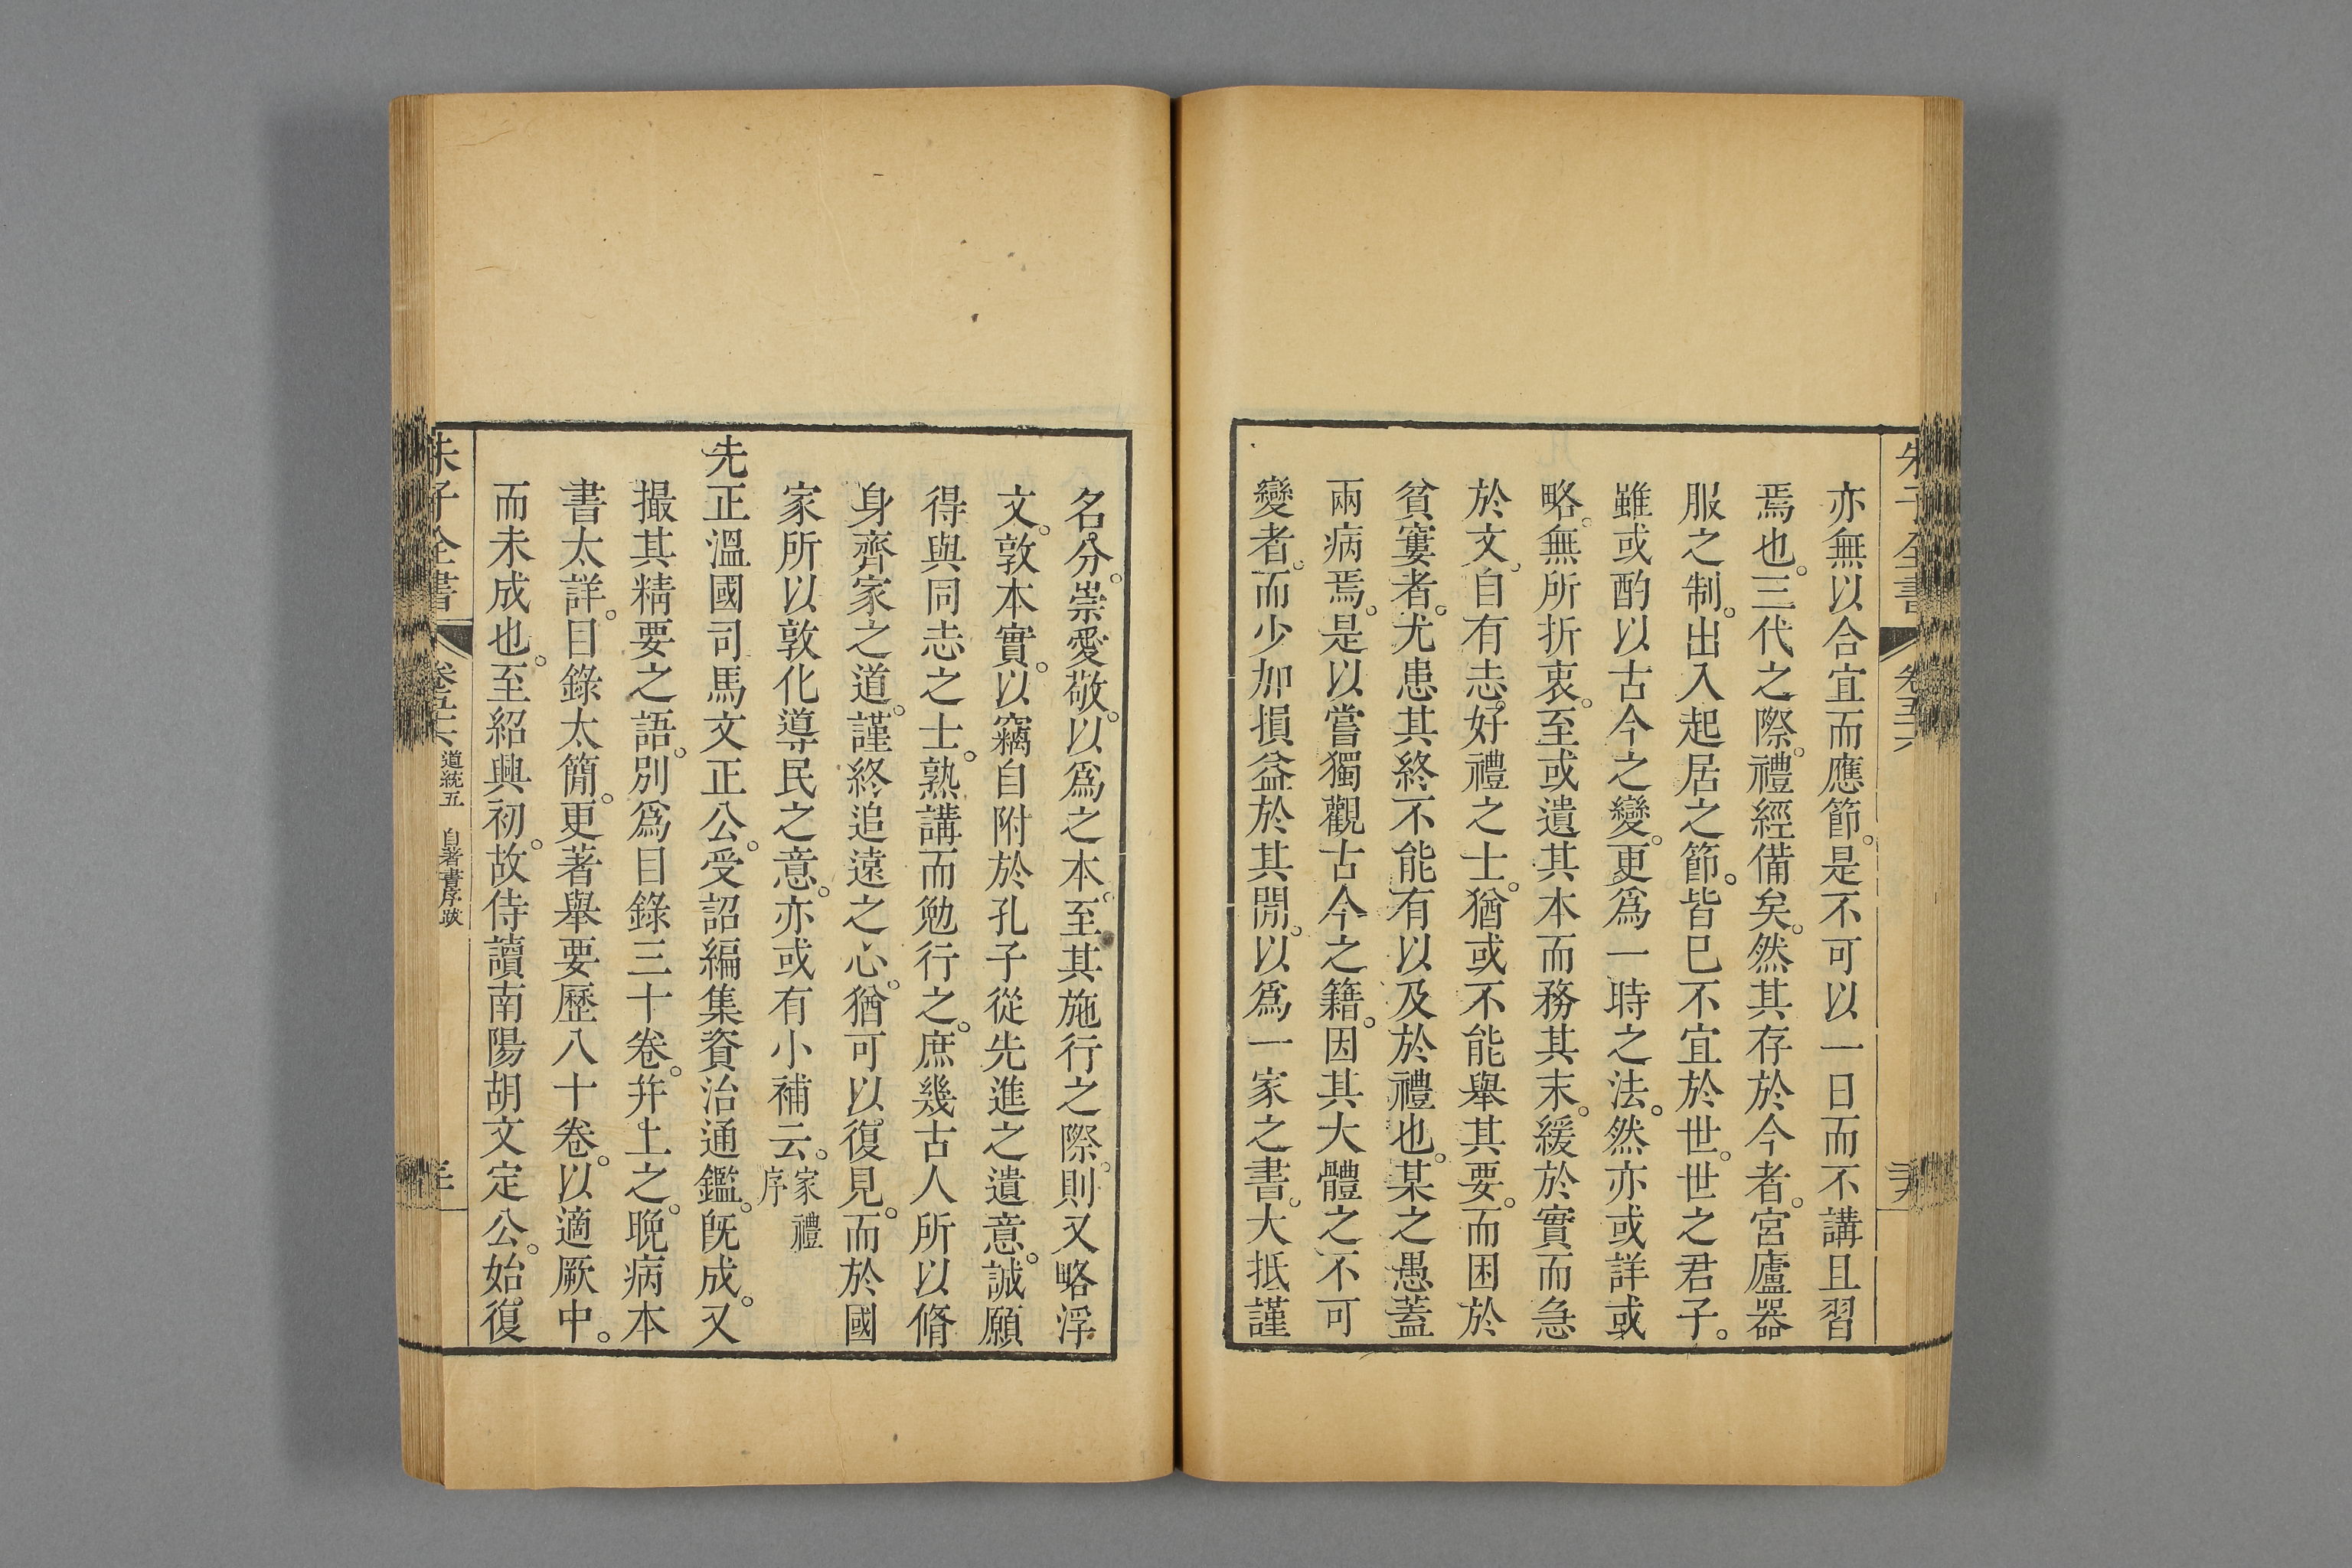 亦無以合宜而應節。是不可以一日而不講且習
焉也。三代之際。禮經備矣。然其存於今者。宮廬器
服之制。出入起居之節。皆已不宜於世。世之君子。
雖或酌以古今之變。更爲一時之法。然亦或詳或
略。無所折衷。至或遺其本而務其末。緩於實而急
於文。自有志好禮之士。猶或不能舉其要。而困於
貧窶者。尤患其終不能有以及於禮也。某之愚蓋
兩病焉。是以嘗獨觀古今之籍。因其大體之不可
變者。而少加損益於其閒。以爲一家之書。大抵謹
名分。崇愛敬。以爲之本。至其施行之際。則又略浮
文。敦本實。以竊自附於孔子從先進之遺意。誠願
得與同志之士。熟講而勉行之。庶幾古人所以脩
身齊家之道。謹終追遠之心。猶可以復見。而於國
家所以敦化導民之意。亦或有小補云。家禮序
先正溫國司馬文正公。受詔編集資治通鑑。旣成。又
撮其精要之語。別爲目錄三十卷。幷上之。晚病本
書太詳。目錄太簡。更著舉要歷八十卷。以適厥中。
而未成也。至紹興初。故侍讀南陽胡文定公。始復
朱子全書 卷五六 道統五 自著書序跋